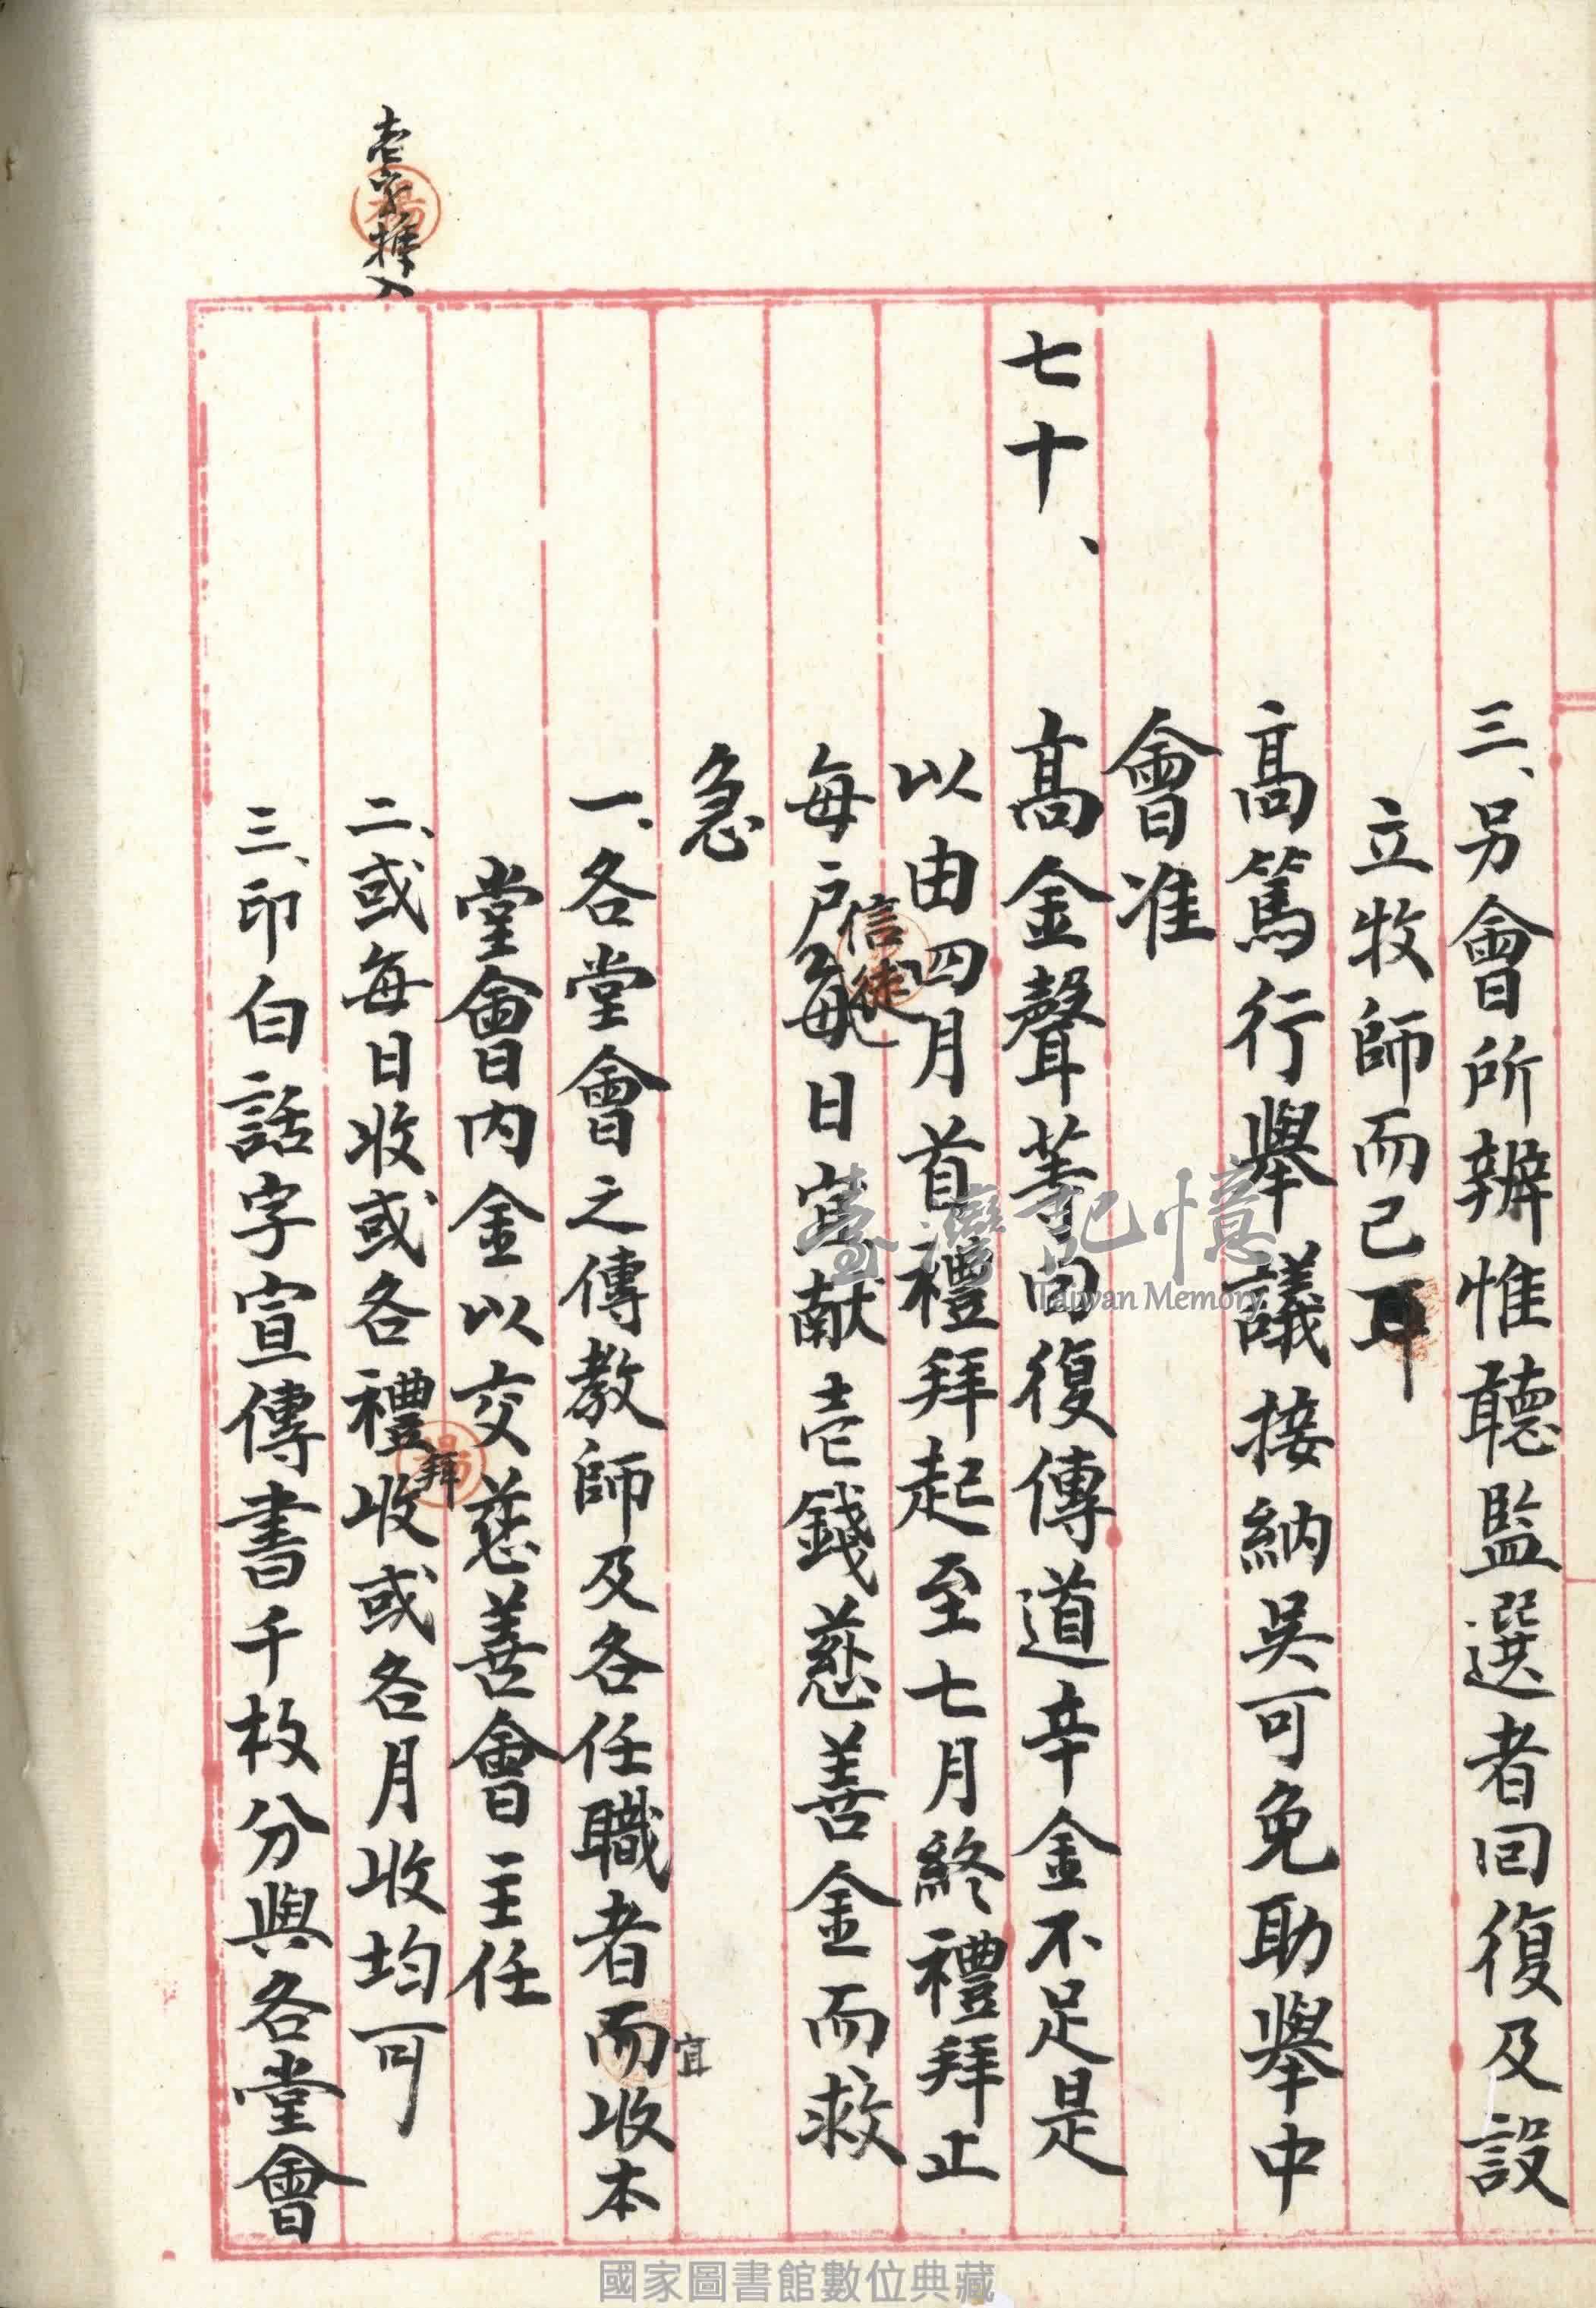 三、另會所辦惟聽監選者回復及設
立牧師而已耳
高篤行舉議接納吳可免助舉中
會准
七十、高金聲等回復傳道辛金不足是
以由四月首禮拜起至七月終禮拜止
每戶每日宜献壱錢慈善金而救
信徒
急
一、各堂會之傳教師及各任職者而收本
宜
堂會内金以交慈善會主任
二、或每日收或各禮收或各月收均可
拜
三、印白話字宣傳書千枚分與各堂會
壱字挿入
臺灣記憶
Taiwan Memory
國家圖書館數位典藏